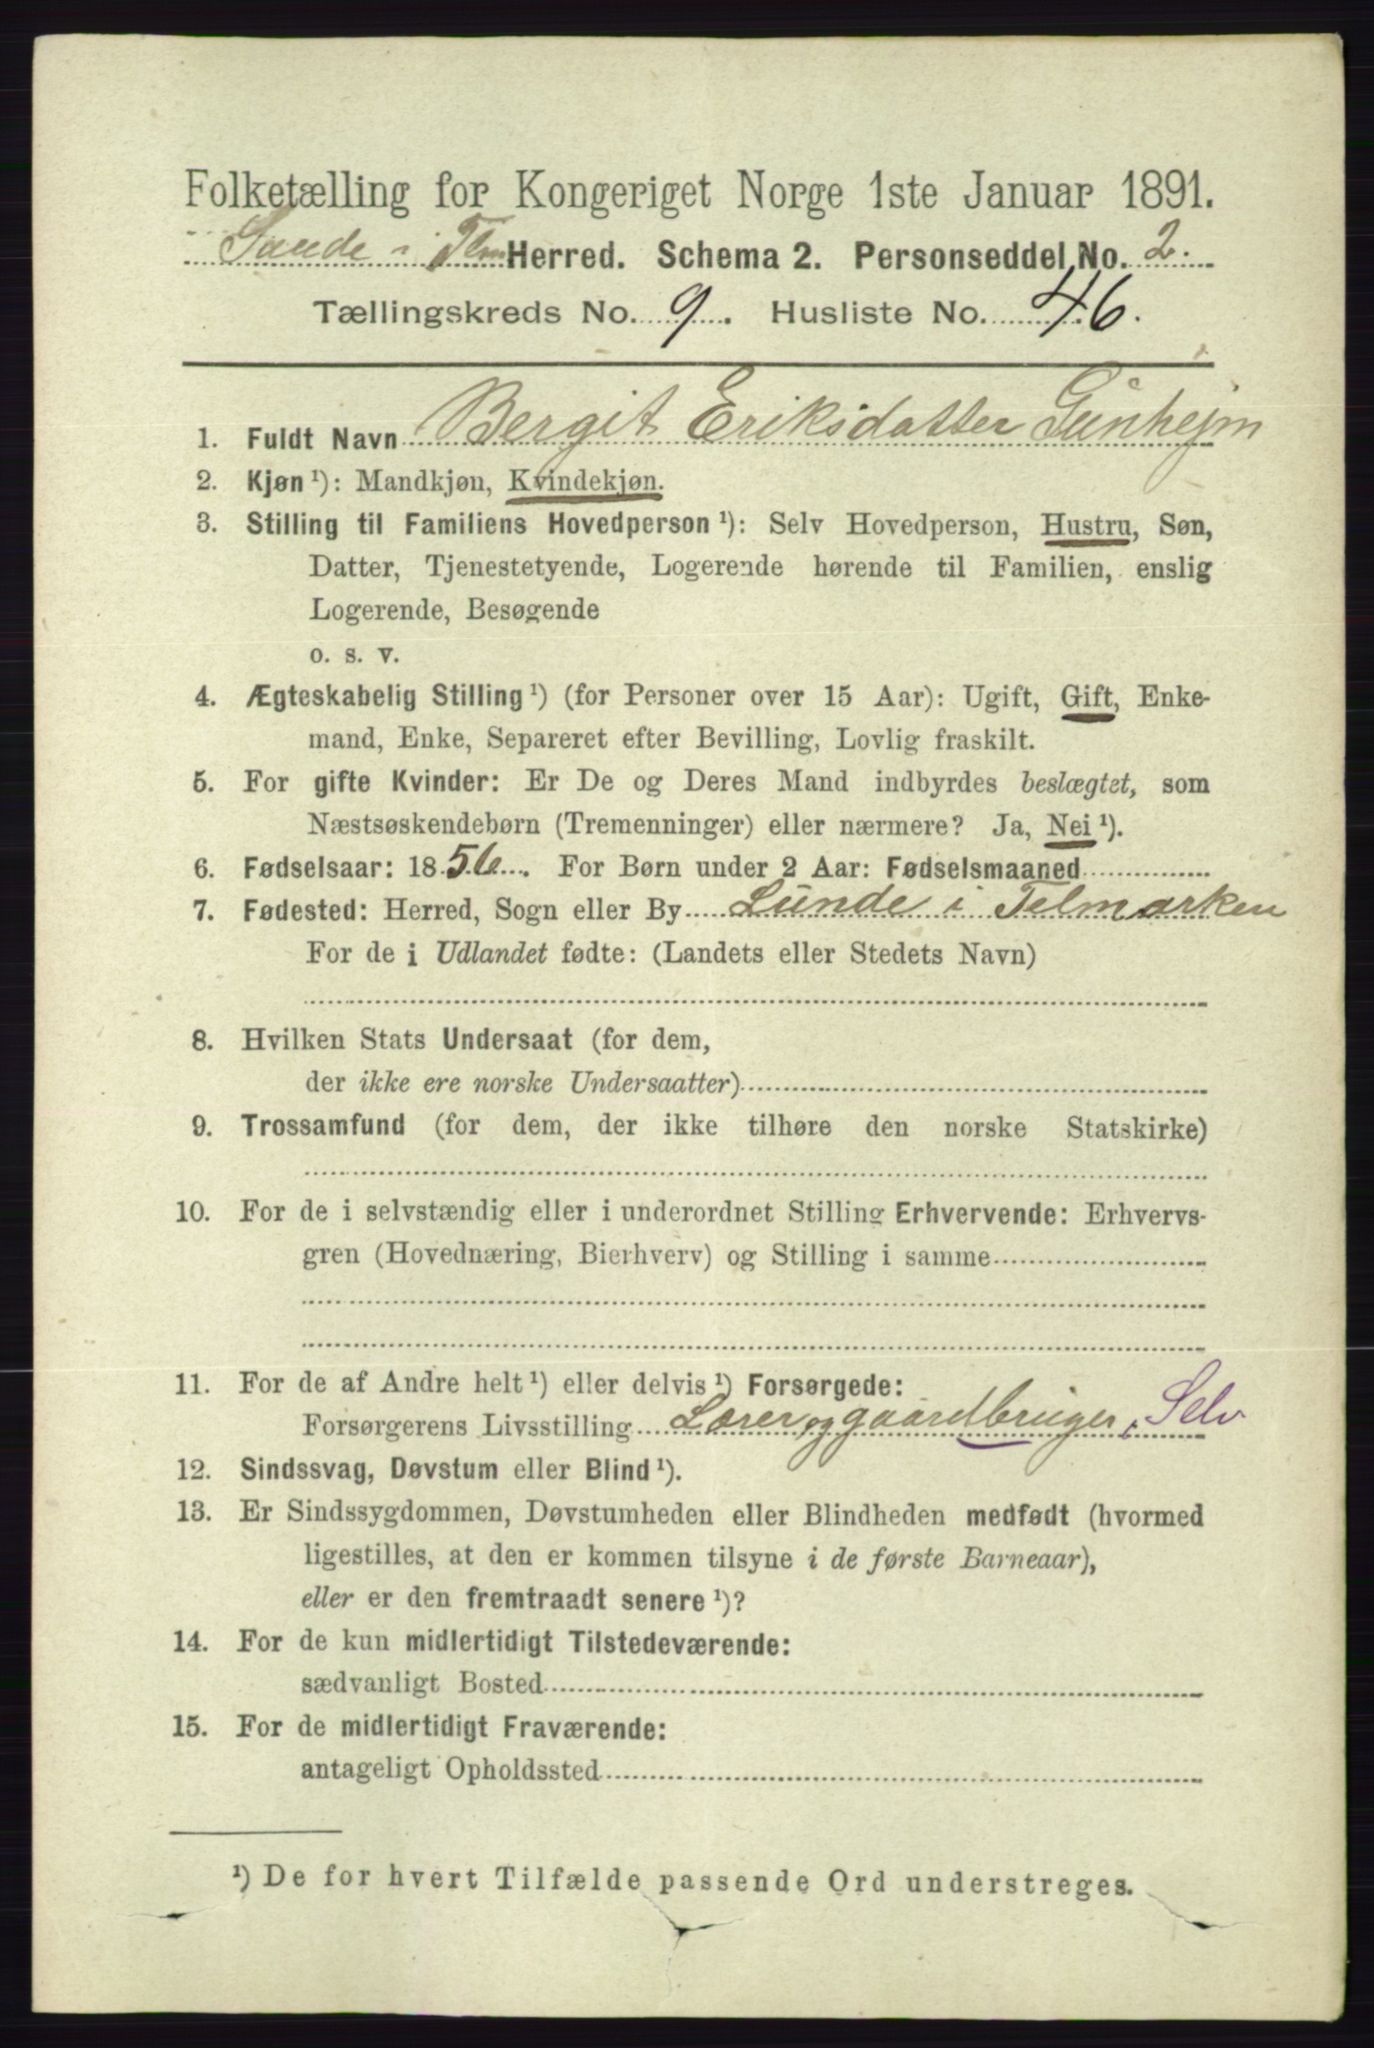 Folketælling for Kongeriget Norge 1ste Januar 1891.
Saude i Tlm Herred. Schema 2. Personseddel No. 2.
Tællingskreds No. 9. Husliste No. 46.
1. Fuldt Navn Bergit Eriksdatter Gunhejm
2. Kjøn ¹): Mandkjøn, Kvindekjøn.
3. Stilling til Familiens Hovedperson ¹): Selv Hovedperson, Hustru, Søn,
Datter, Tjenestetyende, Logerende hørende til Familien, enslig
Logerende, Besøgende
o. s. v.
4. Ægteskabelig Stilling ¹) (for Personer over 15 Aar): Ugift, Gift, Enke-
mand, Enke, Separeret efter Bevilling, Lovlig fraskilt.
5. For gifte Kvinder: Er De og Deres Mand indbyrdes beslægtet, som
Næstsøskendebørn (Tremenninger) eller nærmere? Ja, Nei ¹).
6. Fødselsaar: 1856. For Børn under 2 Aar: Fødselsmaaned
7. Fødested: Herred, Sogn eller By Lunde i Telmarken
For de i Udlandet fødte: (Landets eller Stedets Navn)
8. Hvilken Stats Undersaat (for dem,
der ikke ere norske Undersaatter)
9. Trossamfund (for dem, der ikke tilhøre den norske Statskirke)
10. For de i selvstændig eller i underordnet Stilling Erhvervende: Erhvervs-
gren (Hovednæring, Bierhverv) og Stilling i samme
11. For de af Andre helt ¹) eller delvis ¹) Forsørgede:
Forsørgerens Livsstilling Lærer og gaardbruger, Selv
12. Sindssvag, Døvstum eller Blind ¹).
13. Er Sindssygdommen, Døvstumheden eller Blindheden medfødt (hvormed
ligestilles, at den er kommen tilsyne i de første Barneaar),
eller er den fremtraadt senere ¹)?
14. For de kun midlertidigt Tilstedeværende:
sædvanligt Bosted
15. For de midlertidigt Fraværende:
antageligt Opholdssted
¹) De for hvert Tilfælde passende Ord understreges.